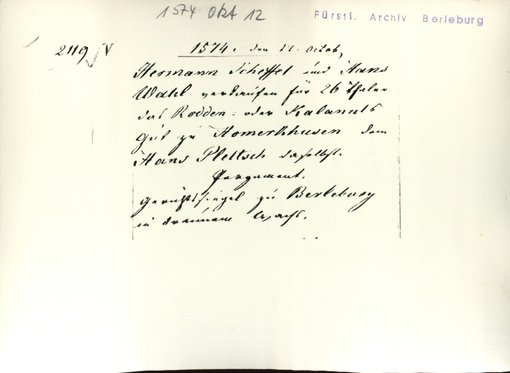 1574 Okt 12
Fürstl. Archiv Berleburg
2119
1574. den 12. Octob,
Hermann Scheffel und Hans
Wahl verkaufen für 26 Thaler
das Rodden- oder Kalanits
Gut zu Hemerkhusen dem
Hans Plettsch daselbst.
Pergament.
Gerichtssiegel zu Berleburg
in braunem Wachs.